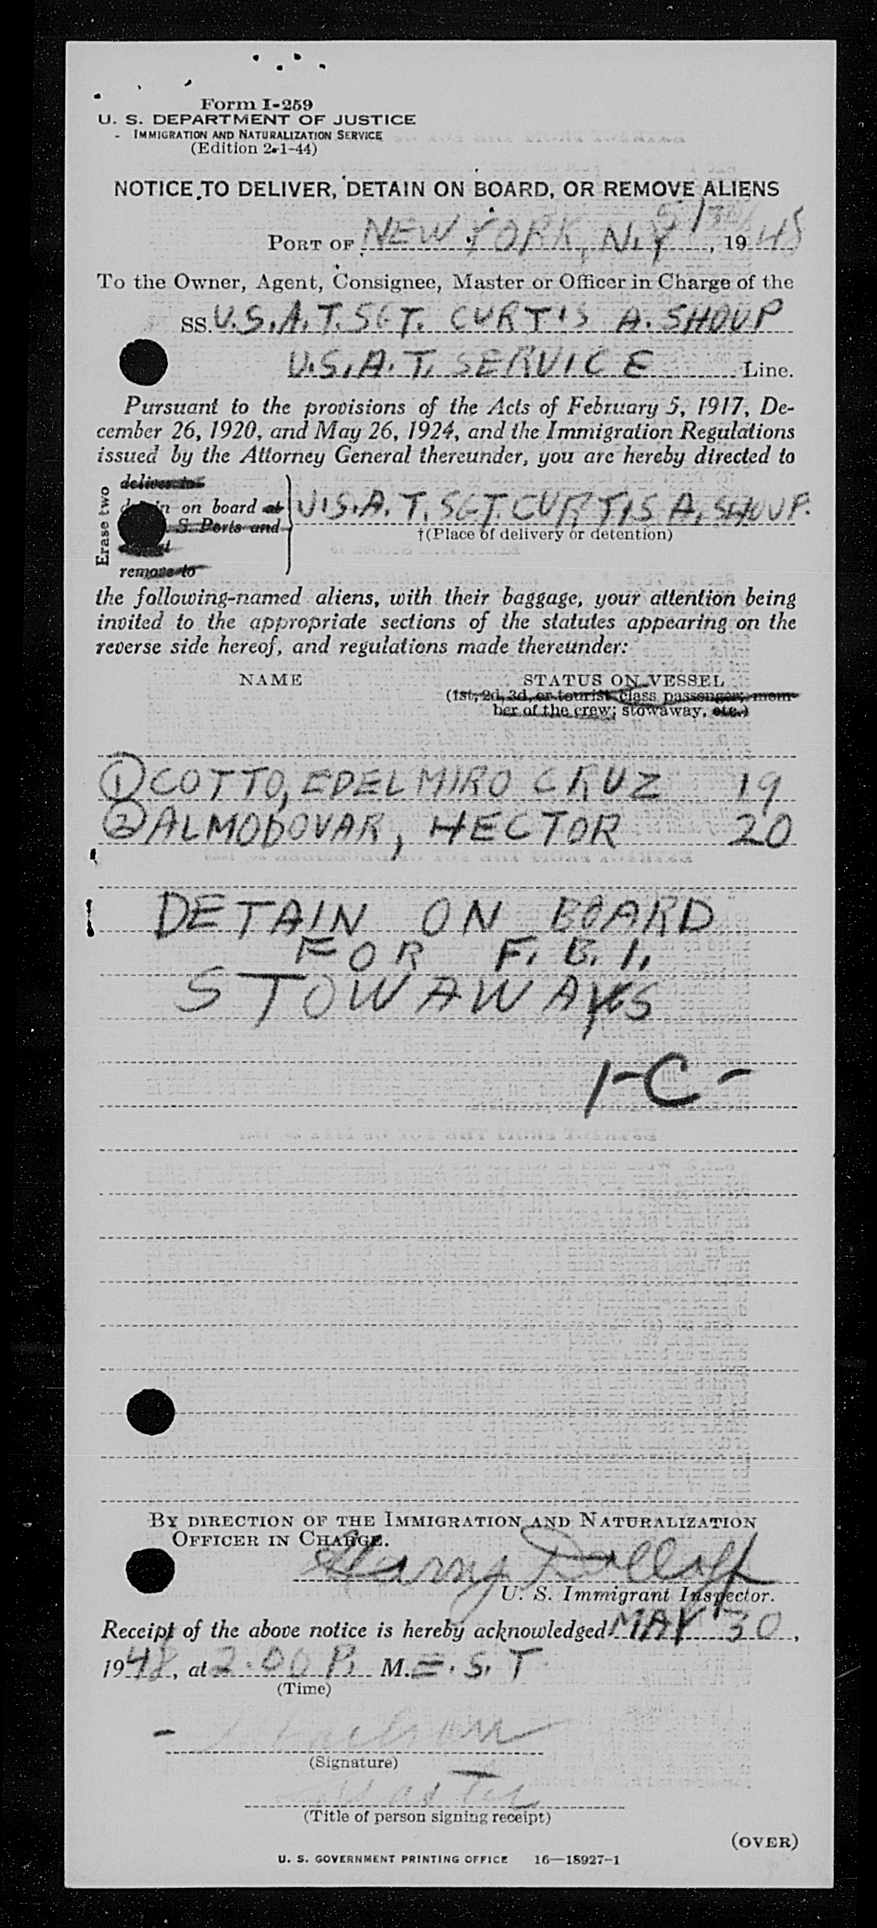 Form I-259
U. S. DEPARTMENT OF JUSTICE
IMMIGRATION AND NATURALIZATION SERVICE
(Edition 2-1-44)
NOTICE TO DELIVER, DETAIN ON BOARD, OR REMOVE ALIENS
PORT OF NEW YORK, N.Y 5/30/, 1948
To the Owner, Agent, Consignee, Master or Officer in Charge of the
SS. U.S.A.T. SGT. CURTIS A. SHOUP
U.S.A.T. SERVICE Line.
Pursuant to the provisions of the Acts of February 5, 1917, De-
cember 26, 1920, and May 26, 1924, and the Immigration Regulations
issued by the Attorney General thereunder, you are hereby directed to
Erase two
deliver to
on board at U.S.A.T. SGT. CURTIS A. SHOUP.
S. Ports and
†(Place of delivery or detention)
remove to
the following-named aliens, with their baggage, your attention being
invited to the appropriate sections of the statutes appearing on the
reverse side hereof, and regulations made thereunder:
NAME STATUS ON VESSEL
(1st, 2d, 3d, or tourist class passenger, mem-
ber of the crew; stowaway, etc.)
① COTTO, EDELMIRO CRUZ 19
② ALMODOVAR, HECTOR 20
DETAIN ON BOARD
FOR F.B.I.
STOWAWAYS
1-C-
BY DIRECTION OF THE IMMIGRATION AND NATURALIZATION
OFFICER IN CHARGE.
Harry
U. S. Immigrant Inspector.
Receipt of the above notice is hereby acknowledged MAY 30,
1948, at 2.00 P. M. E.S.T.
(Time)
(Signature)
Master
(Title of person signing receipt)
(OVER)
U. S. GOVERNMENT PRINTING OFFICE 16—18927-1